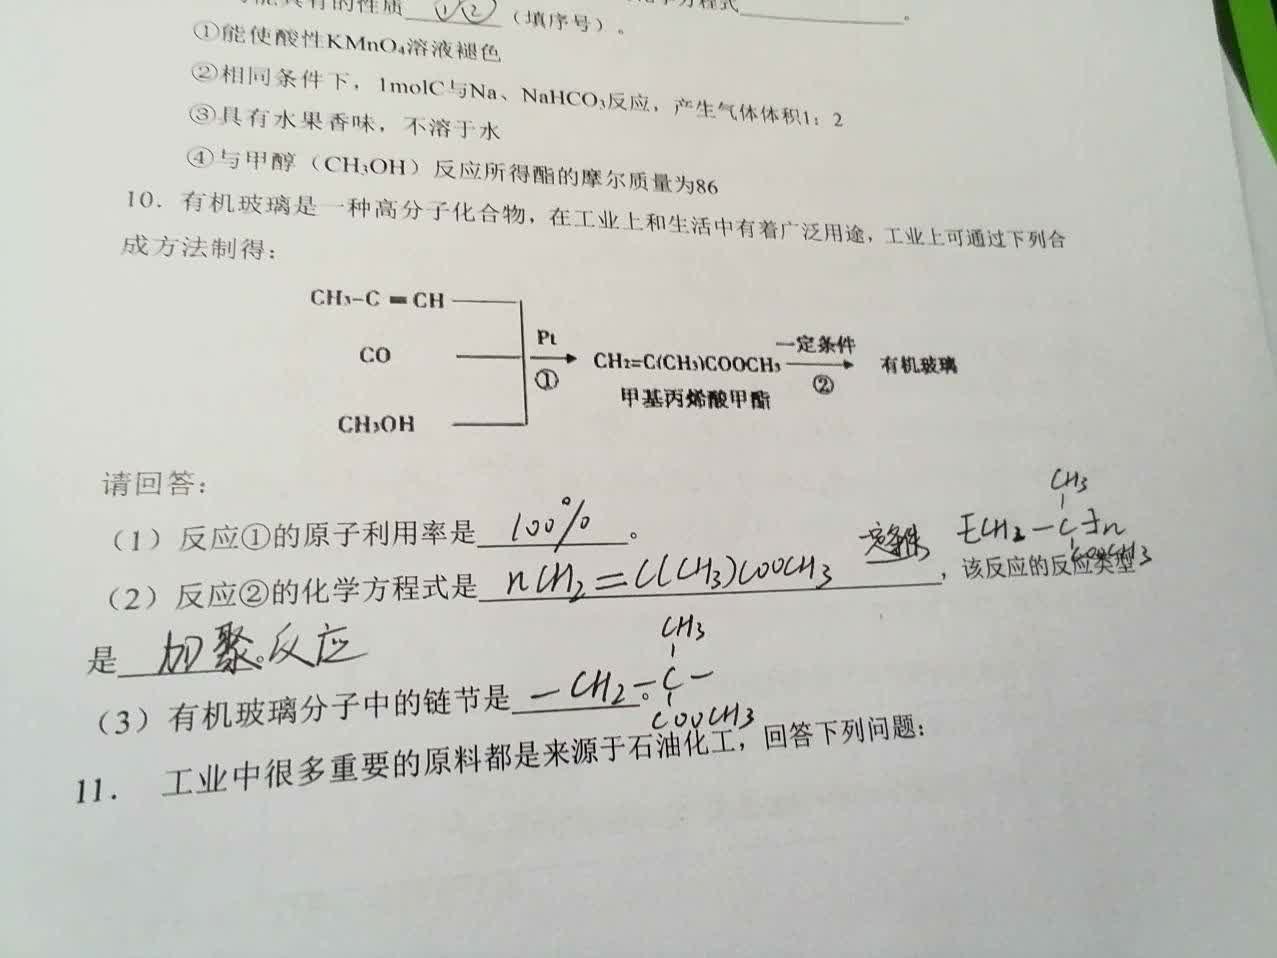 具有的性质 ①② （填序号）。
①能使酸性KMnO₄溶液褪色
②相同条件下，1molC与Na、NaHCO₃反应，产生气体体积1：2
③具有水果香味，不溶于水
④与甲醇（CH₃OH）反应所得酯的摩尔质量为86
10．有机玻璃是一种高分子化合物，在工业上和生活中有着广泛用途，工业上可通过下列合
成方法制得：
CH₃-C≡CH
CO
CH₃OH
Pt
①
CH₂=C(CH₃)COOCH₃
甲基丙烯酸甲酯
一定条件
②
有机玻璃
请回答：
（1）反应①的原子利用率是 100% 。
（2）反应②的化学方程式是 nCH₂=C(CH₃)COOCH₃ 一定条件 [CH₂-C]n ，该反应的反应类型
CH₃
COOCH₃
是 加聚反应 。
（3）有机玻璃分子中的链节是 -CH₂-C- 。
CH₃
COOCH₃
11． 工业中很多重要的原料都是来源于石油化工，回答下列问题：